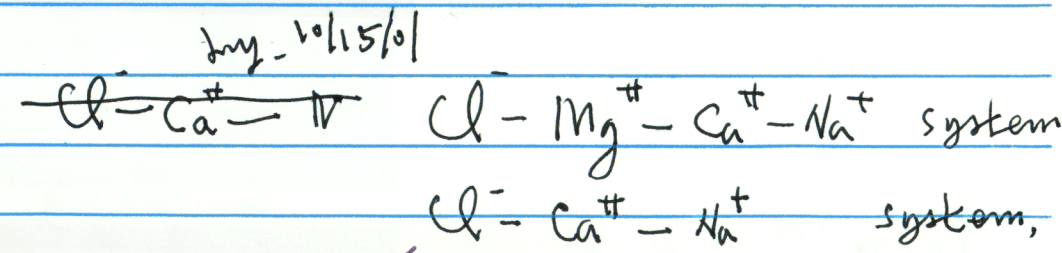 10/15/01
Cl⁻ – Ca⁺⁺ – N
Cl⁻ – Mg⁺⁺ – Ca⁺⁺ – Na⁺ system
Cl⁻ – Ca⁺⁺ – Na⁺ system,